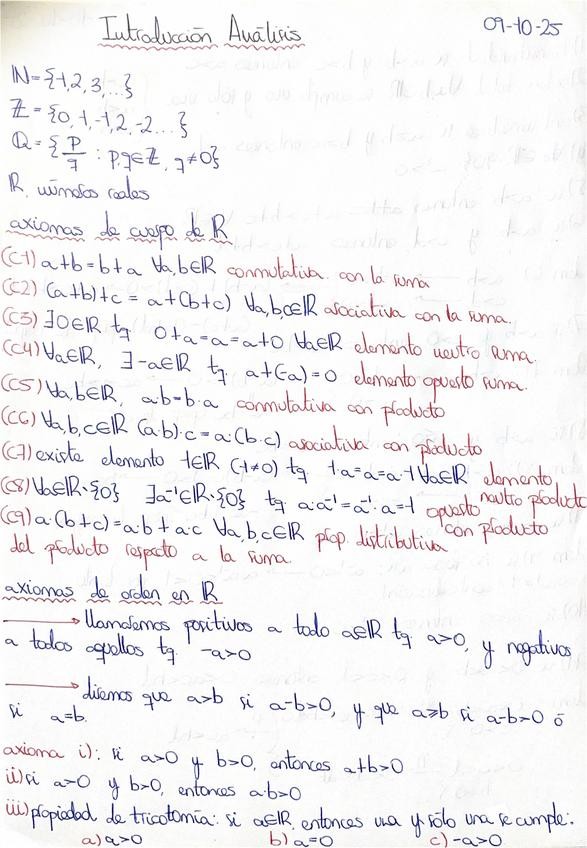 Introducción Análisis
09-10-25
ℕ={1,2,3,...}
ℤ={0,1,-1,2,-2...}
ℚ={p/q : p,q∈ℤ, q≠0}
ℝ. números reales
axiomas de cuerpo de ℝ
(C1) a+b=b+a ∀a,b∈ℝ conmutativa con la suma
(C2) (a+b)+c = a+(b+c) ∀a,b,c∈ℝ asociativa con la suma.
(C3) ∃0∈ℝ tq 0+a=a=a+0 ∀a∈ℝ elemento neutro suma.
(C4) ∀a∈ℝ, ∃-a∈ℝ tq a+(-a)=0 elemento opuesto suma.
(C5) ∀a,b∈ℝ, a·b=b·a conmutativa con producto
(C6) ∀a,b,c∈ℝ (a·b)·c=a·(b·c) asociativa con producto
(C7) existe elemento 1∈ℝ (1≠0) tq 1·a=a=a·1 ∀a∈ℝ elemento neutro producto
(C8) ∀a∈ℝ\{0} ∃a⁻¹∈ℝ\{0} tq a·a⁻¹=a⁻¹·a=1 opuesto con producto
(C9) a·(b+c)=a·b+a·c ∀a,b,c∈ℝ prop. distributiva
del producto respecto a la suma.
axiomas de orden en ℝ
→ llamaremos positivos a todo a∈ℝ tq a>0, y negativos
a todos aquellos tq -a>0
→ diremos que a>b si a-b>0, y que a≥b si a-b>0 ó
si a=b.
axioma i): si a>0 y b>0, entonces a+b>0
ii) si a>0 y b>0, entonces a·b>0
iii) propiedad de tricotomía: si a∈ℝ, entonces una y sólo una se cumple:
a) a>0 b) a=0 c) -a>0